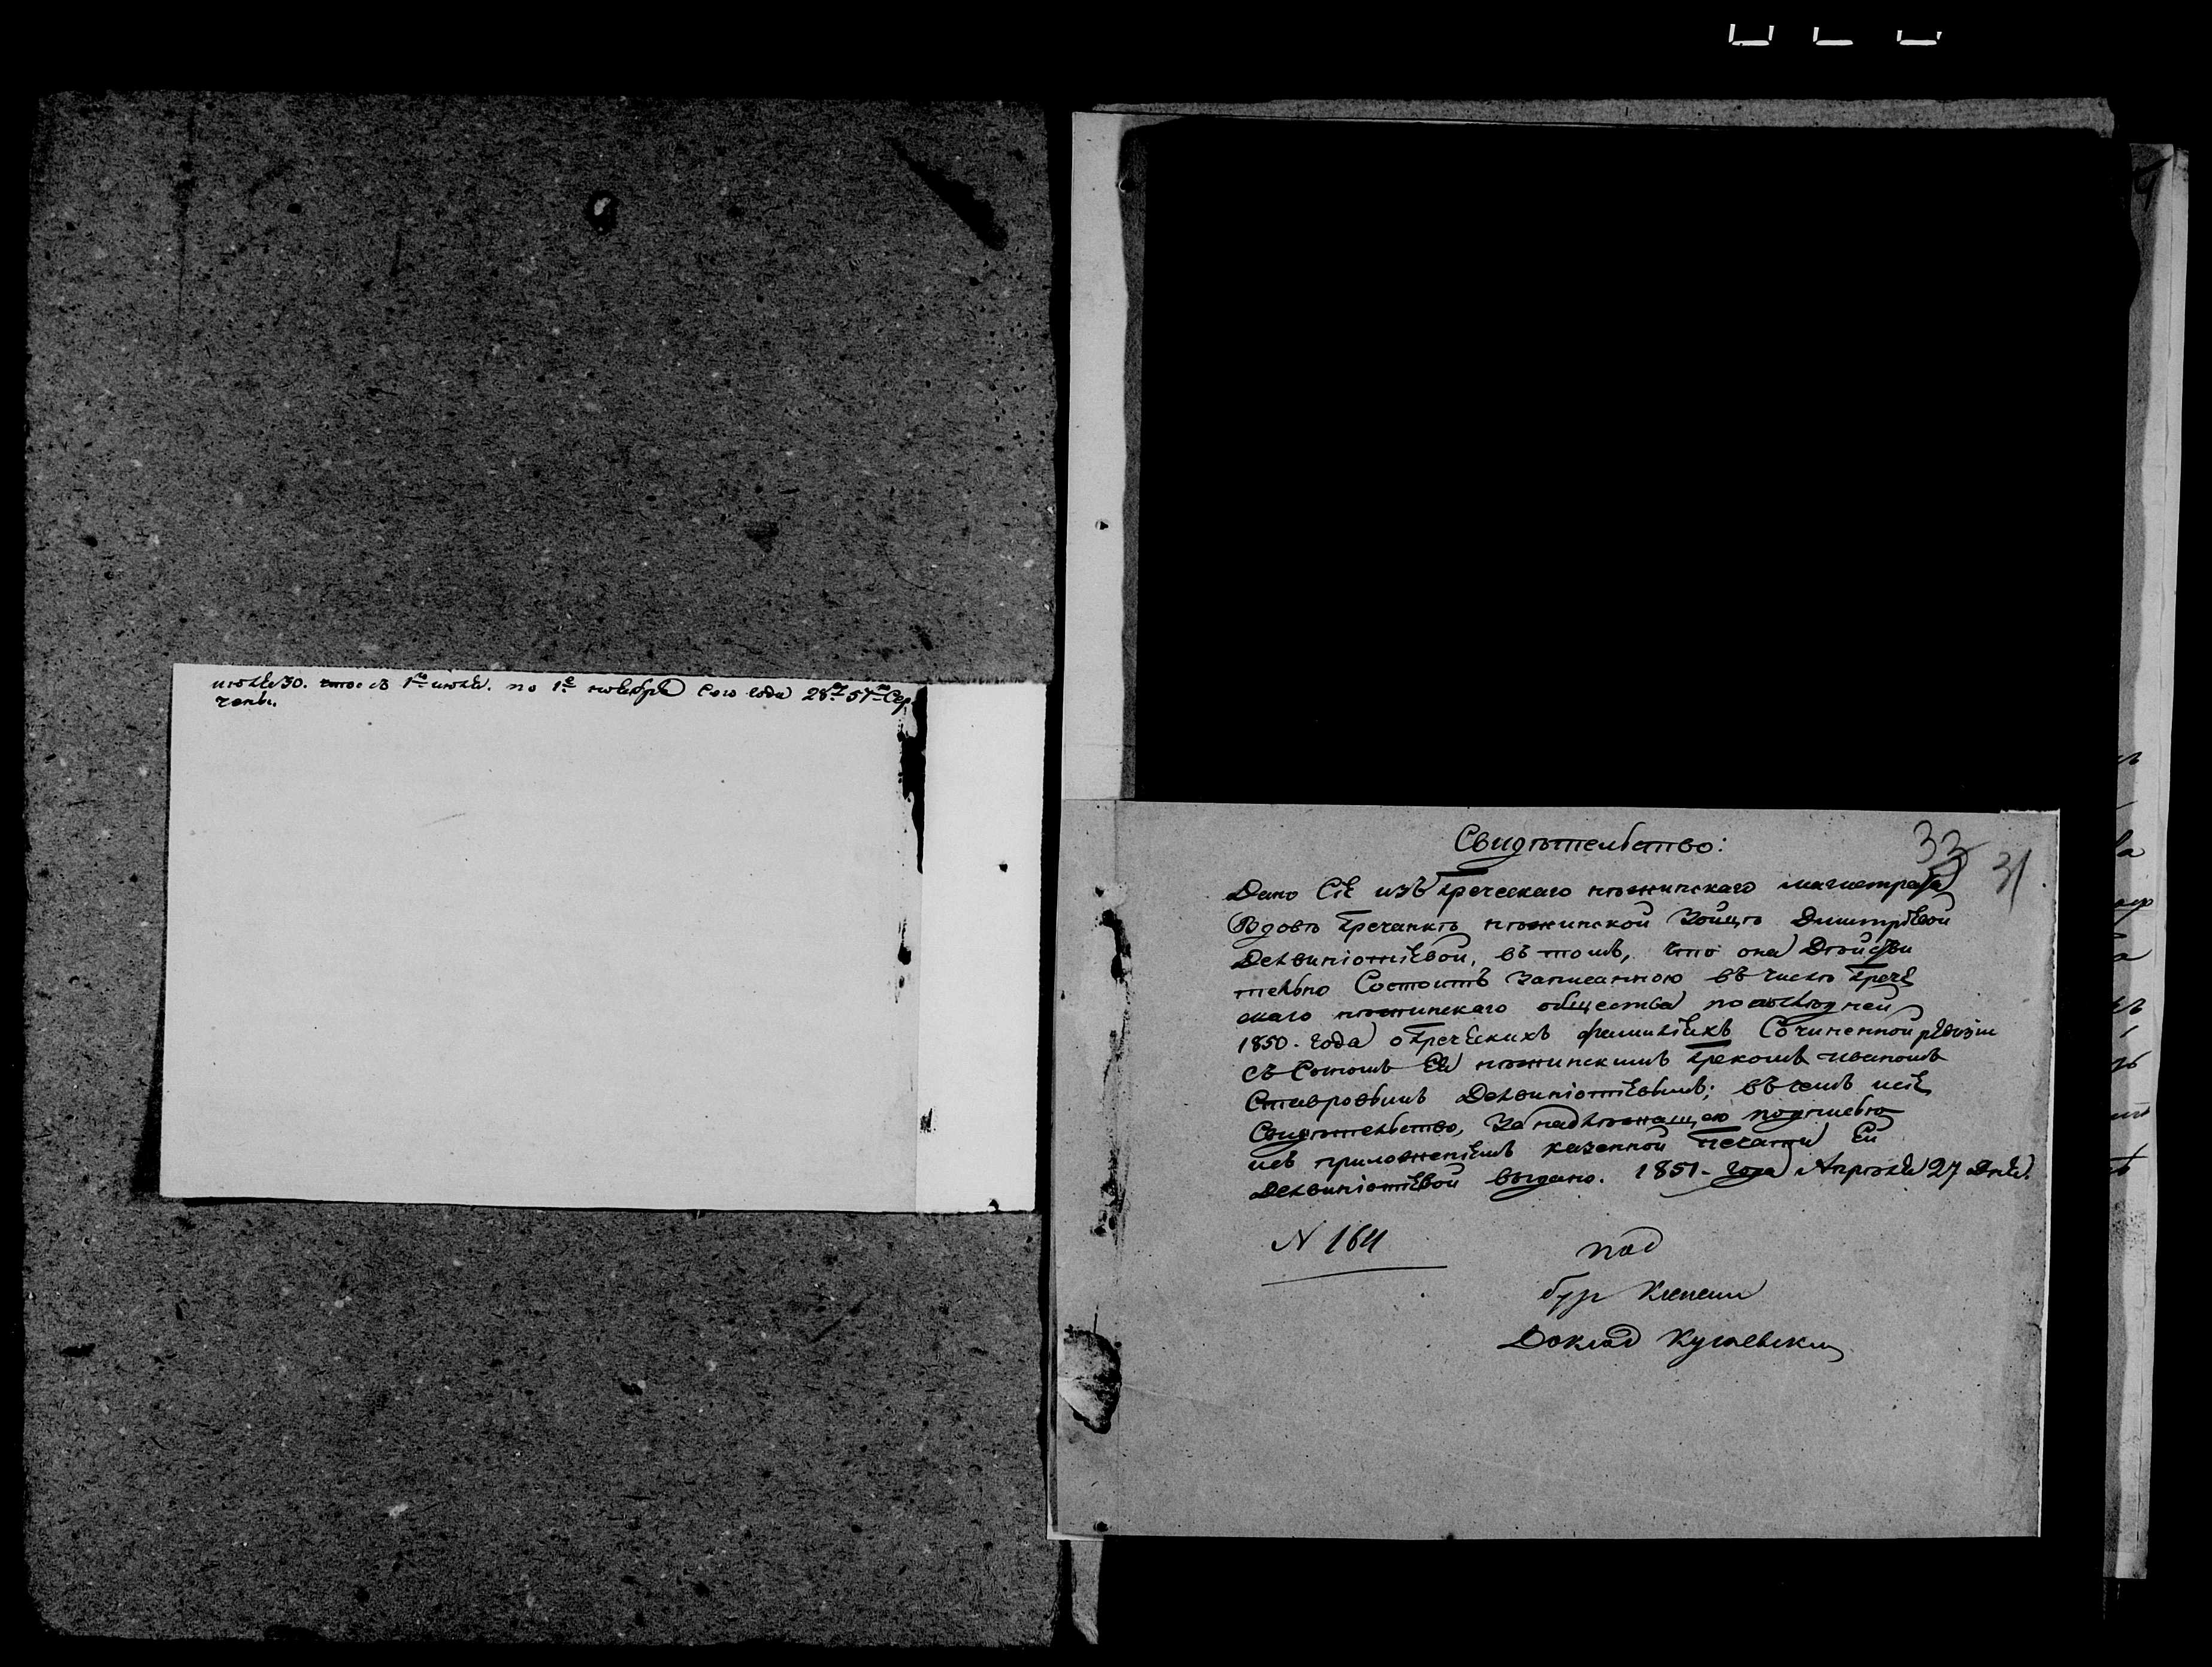 июля 30. что съ 1го июля. по 1е ноября сего года 28 57 Сер
Свидѣтельство:
33
31
Дано Сіе изъ Греческаго нѣжинскаго магистрата
Вдовѣ Гречанкѣ нѣжинской Зоицѣ Димитріевой
Делвиніотіевой, въ томъ, что она Дѣйстви
тельно Состоитъ Записанною въ числѣ Грече
скаго нѣжинскаго общества по послѣдней
1850. года о Греческихъ фамиліяхъ Сочиненной ревизіи
съ Сыномъ Ея нѣжинскимъ Грекомъ Иваномъ
Ставровымъ Делвиніотіевымъ; въ чемъ и сіе
Свидѣтельство, За надлежащею подписью
и съ приложеніемъ казенной печати Ей
Делвиніотіевой выдано. 1851. года Апрѣля 27 Дня.
N 164
под
бур
Доклад